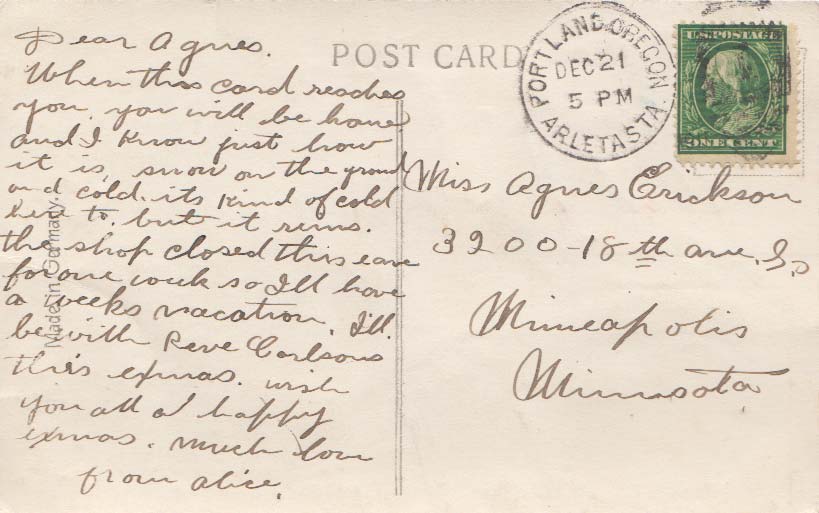 POST CARD
PORTLAND, OREGON
DEC 21
5 PM
ARLETA STA.
U.S. POSTAGE
ONE CENT
Made in Germany.
Dear Agnes.
When this card reaches
you, you will be home
and I know just how
it is, snow on the ground
and cold. its kind of cold
here to. but it rains.
the shop closed this eave
for one week so I'll have
a weeks vacation. I'll
be with Reve Carlsons
this exmas. wish
you all a happy
exmas. much love
from Alice.
Miss Agnes Erickson
3200-18th ave. So
Mineapolis
Minnsota